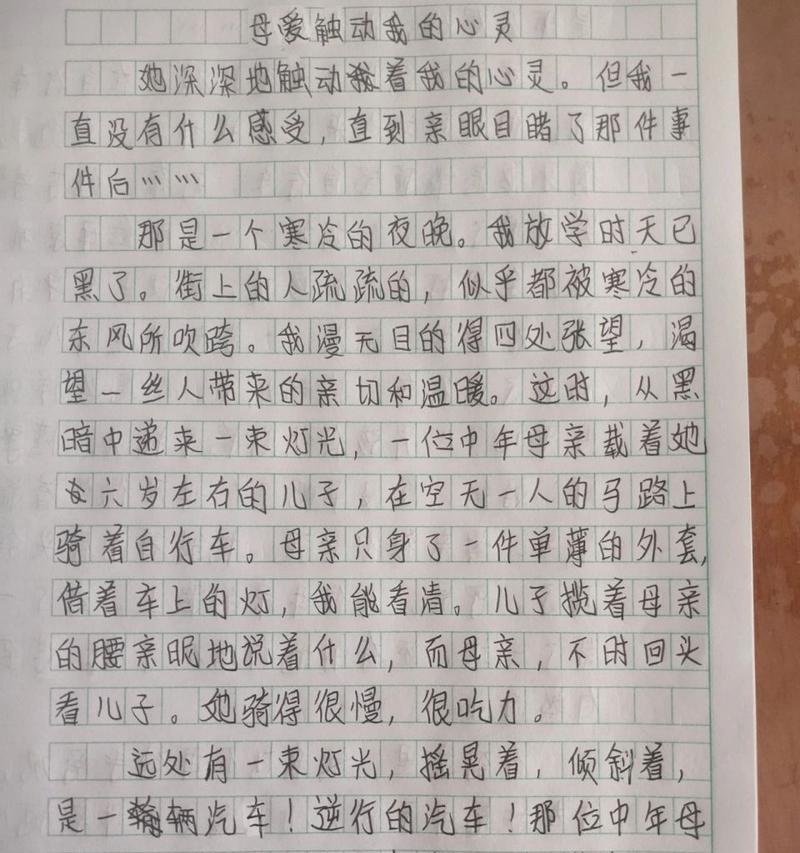 母爱触动我的心灵
她深深地触动着我的心灵。但我一
直没有什么感受，直到亲眼目睹了那件事
件后……
那是一个寒冷的夜晚。我放学时天已
黑了。街上的人疏疏的，似乎都被寒冷的
东风所吹跨。我漫无目的得四处张望，渴
望一丝人带来的亲切和温暖。这时，从黑
暗中递来一束灯光，一位中年母亲载着她
六岁左右的儿子，在空无一人的马路上
骑着自行车。母亲只身了一件单薄的外套，
借着车上的灯，我能看清。儿子揽着母亲
的腰亲昵地说着什么，而母亲，不时回头
看儿子。她骑得很慢，很吃力。
远处有一束灯光，摇晃着，倾斜着，
是一辆汽车！逆行的汽车！那位中年母